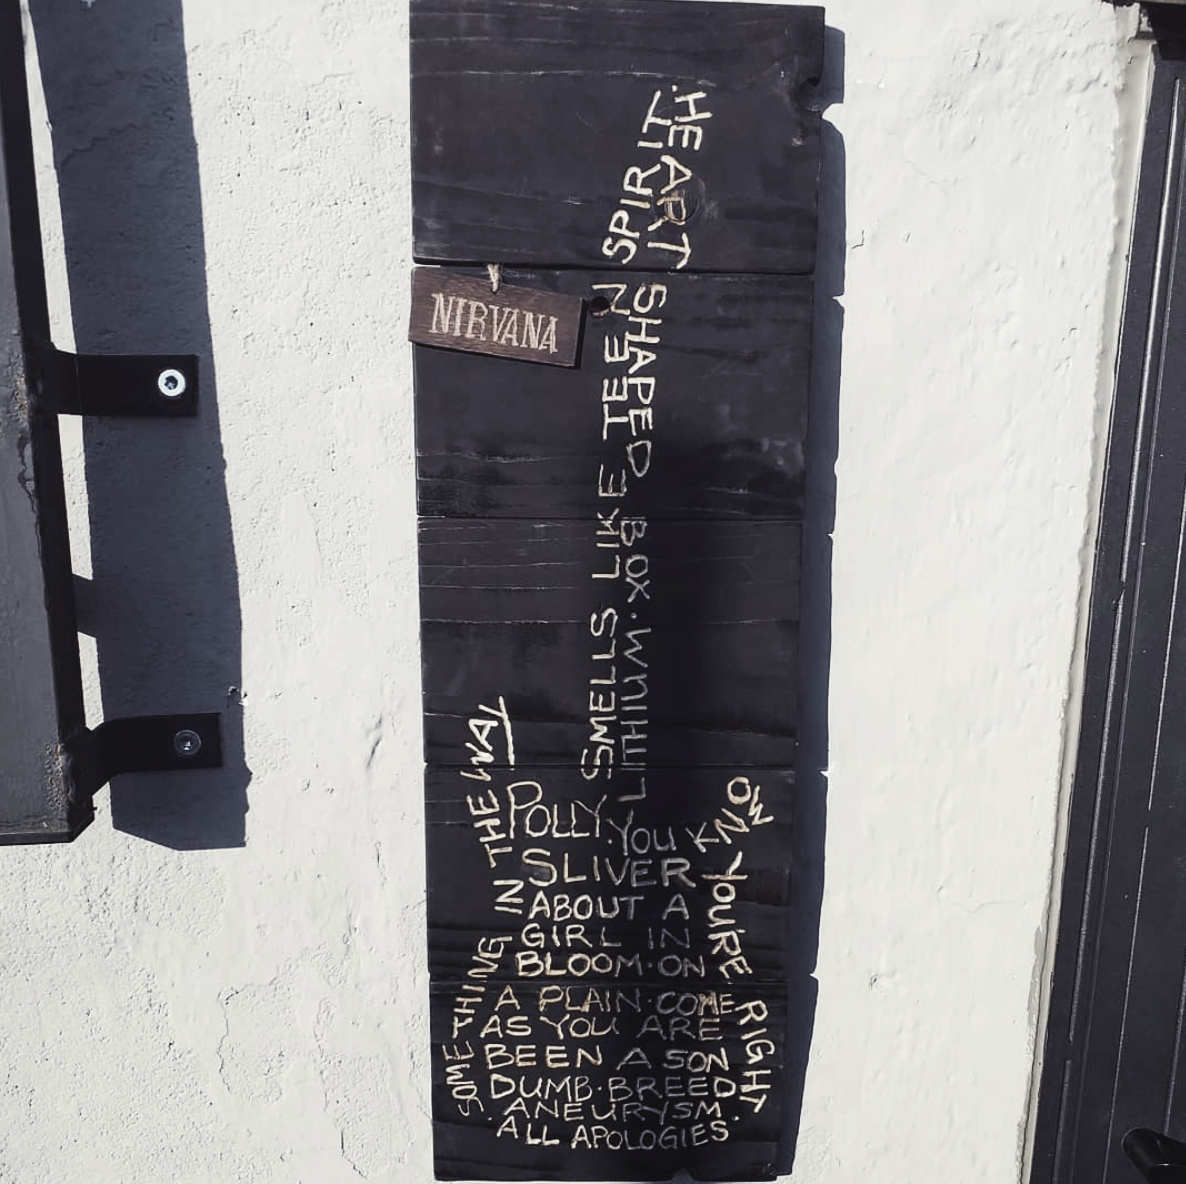 HEART SHAPED BOX.
LITHIUM
SMELLS LIKE TEEN SPIRIT.
NIRVANA
SOMETHING IN THE WAY
POLLY.
YOU K
NOW YOU'RE RIGHT
SLIVER
ABOUT A
GIRL IN
BLOOM.ON
A PLAIN.COME
AS YOU ARE
BEEN A SON
DUMB.BREED
.ANEURYSM.
ALL APOLOGIES